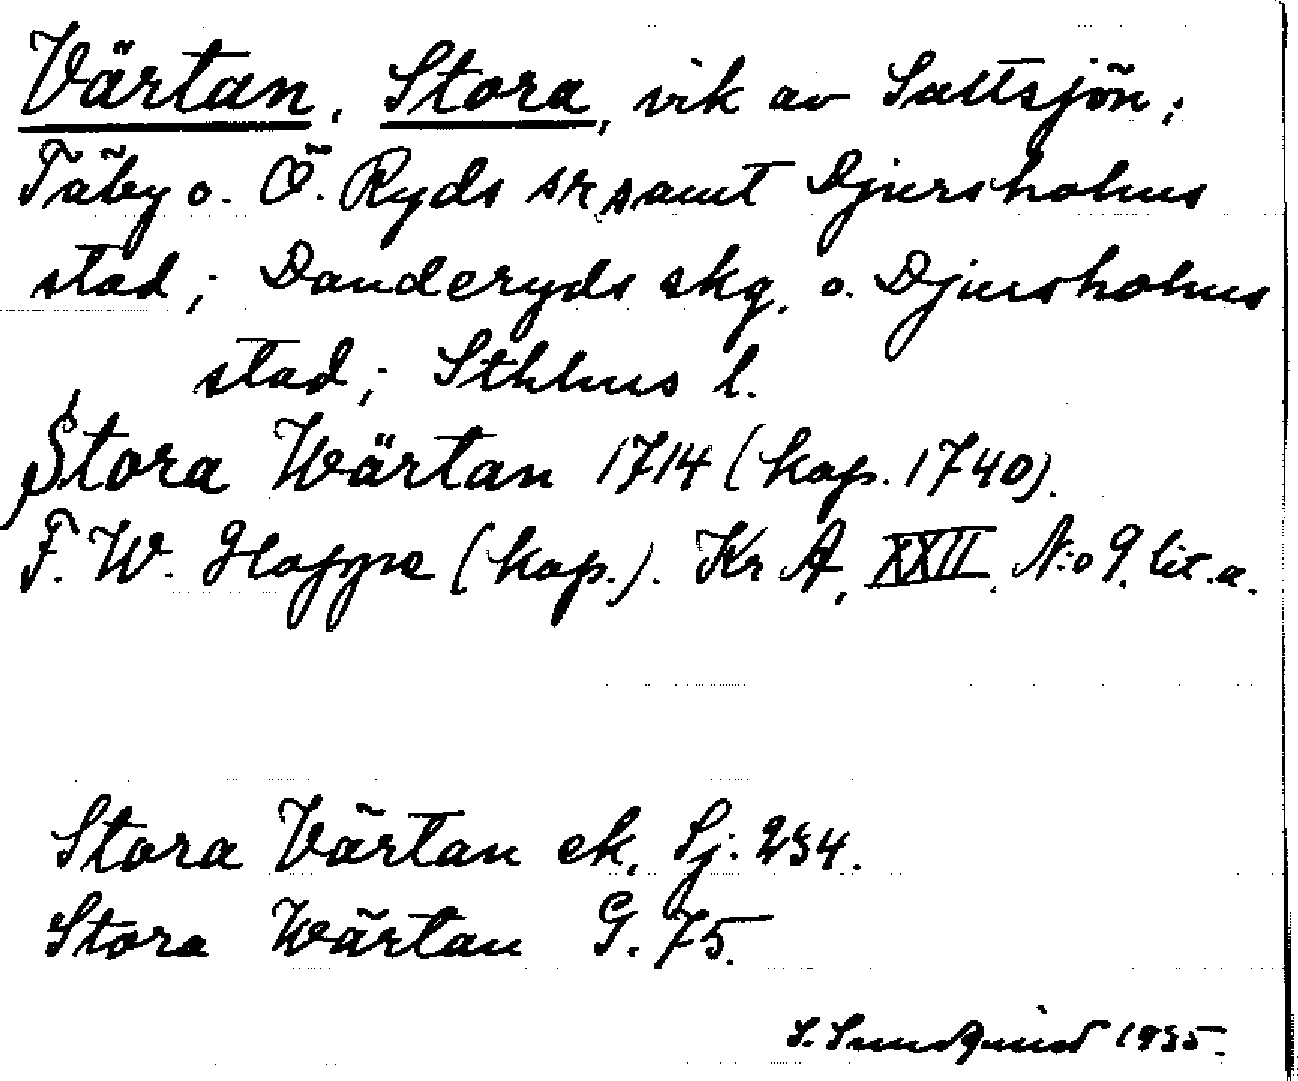 Värtan, Stora, vik av Saltsjön;
Täby o. Ö. Ryds sr samt Djursholms
stad; Danderyds skg. o. Djursholms
stad; Sthlms l.
Stora Wärtan 1714 (kop. 1740).
F. W. Hoppe (kop.). Kr A, XXII. N:o 9. lit. a.
Stora Värtan ek. Sj: 234.
Stora Wärtan G. 75.
S. Sundquist 1935.